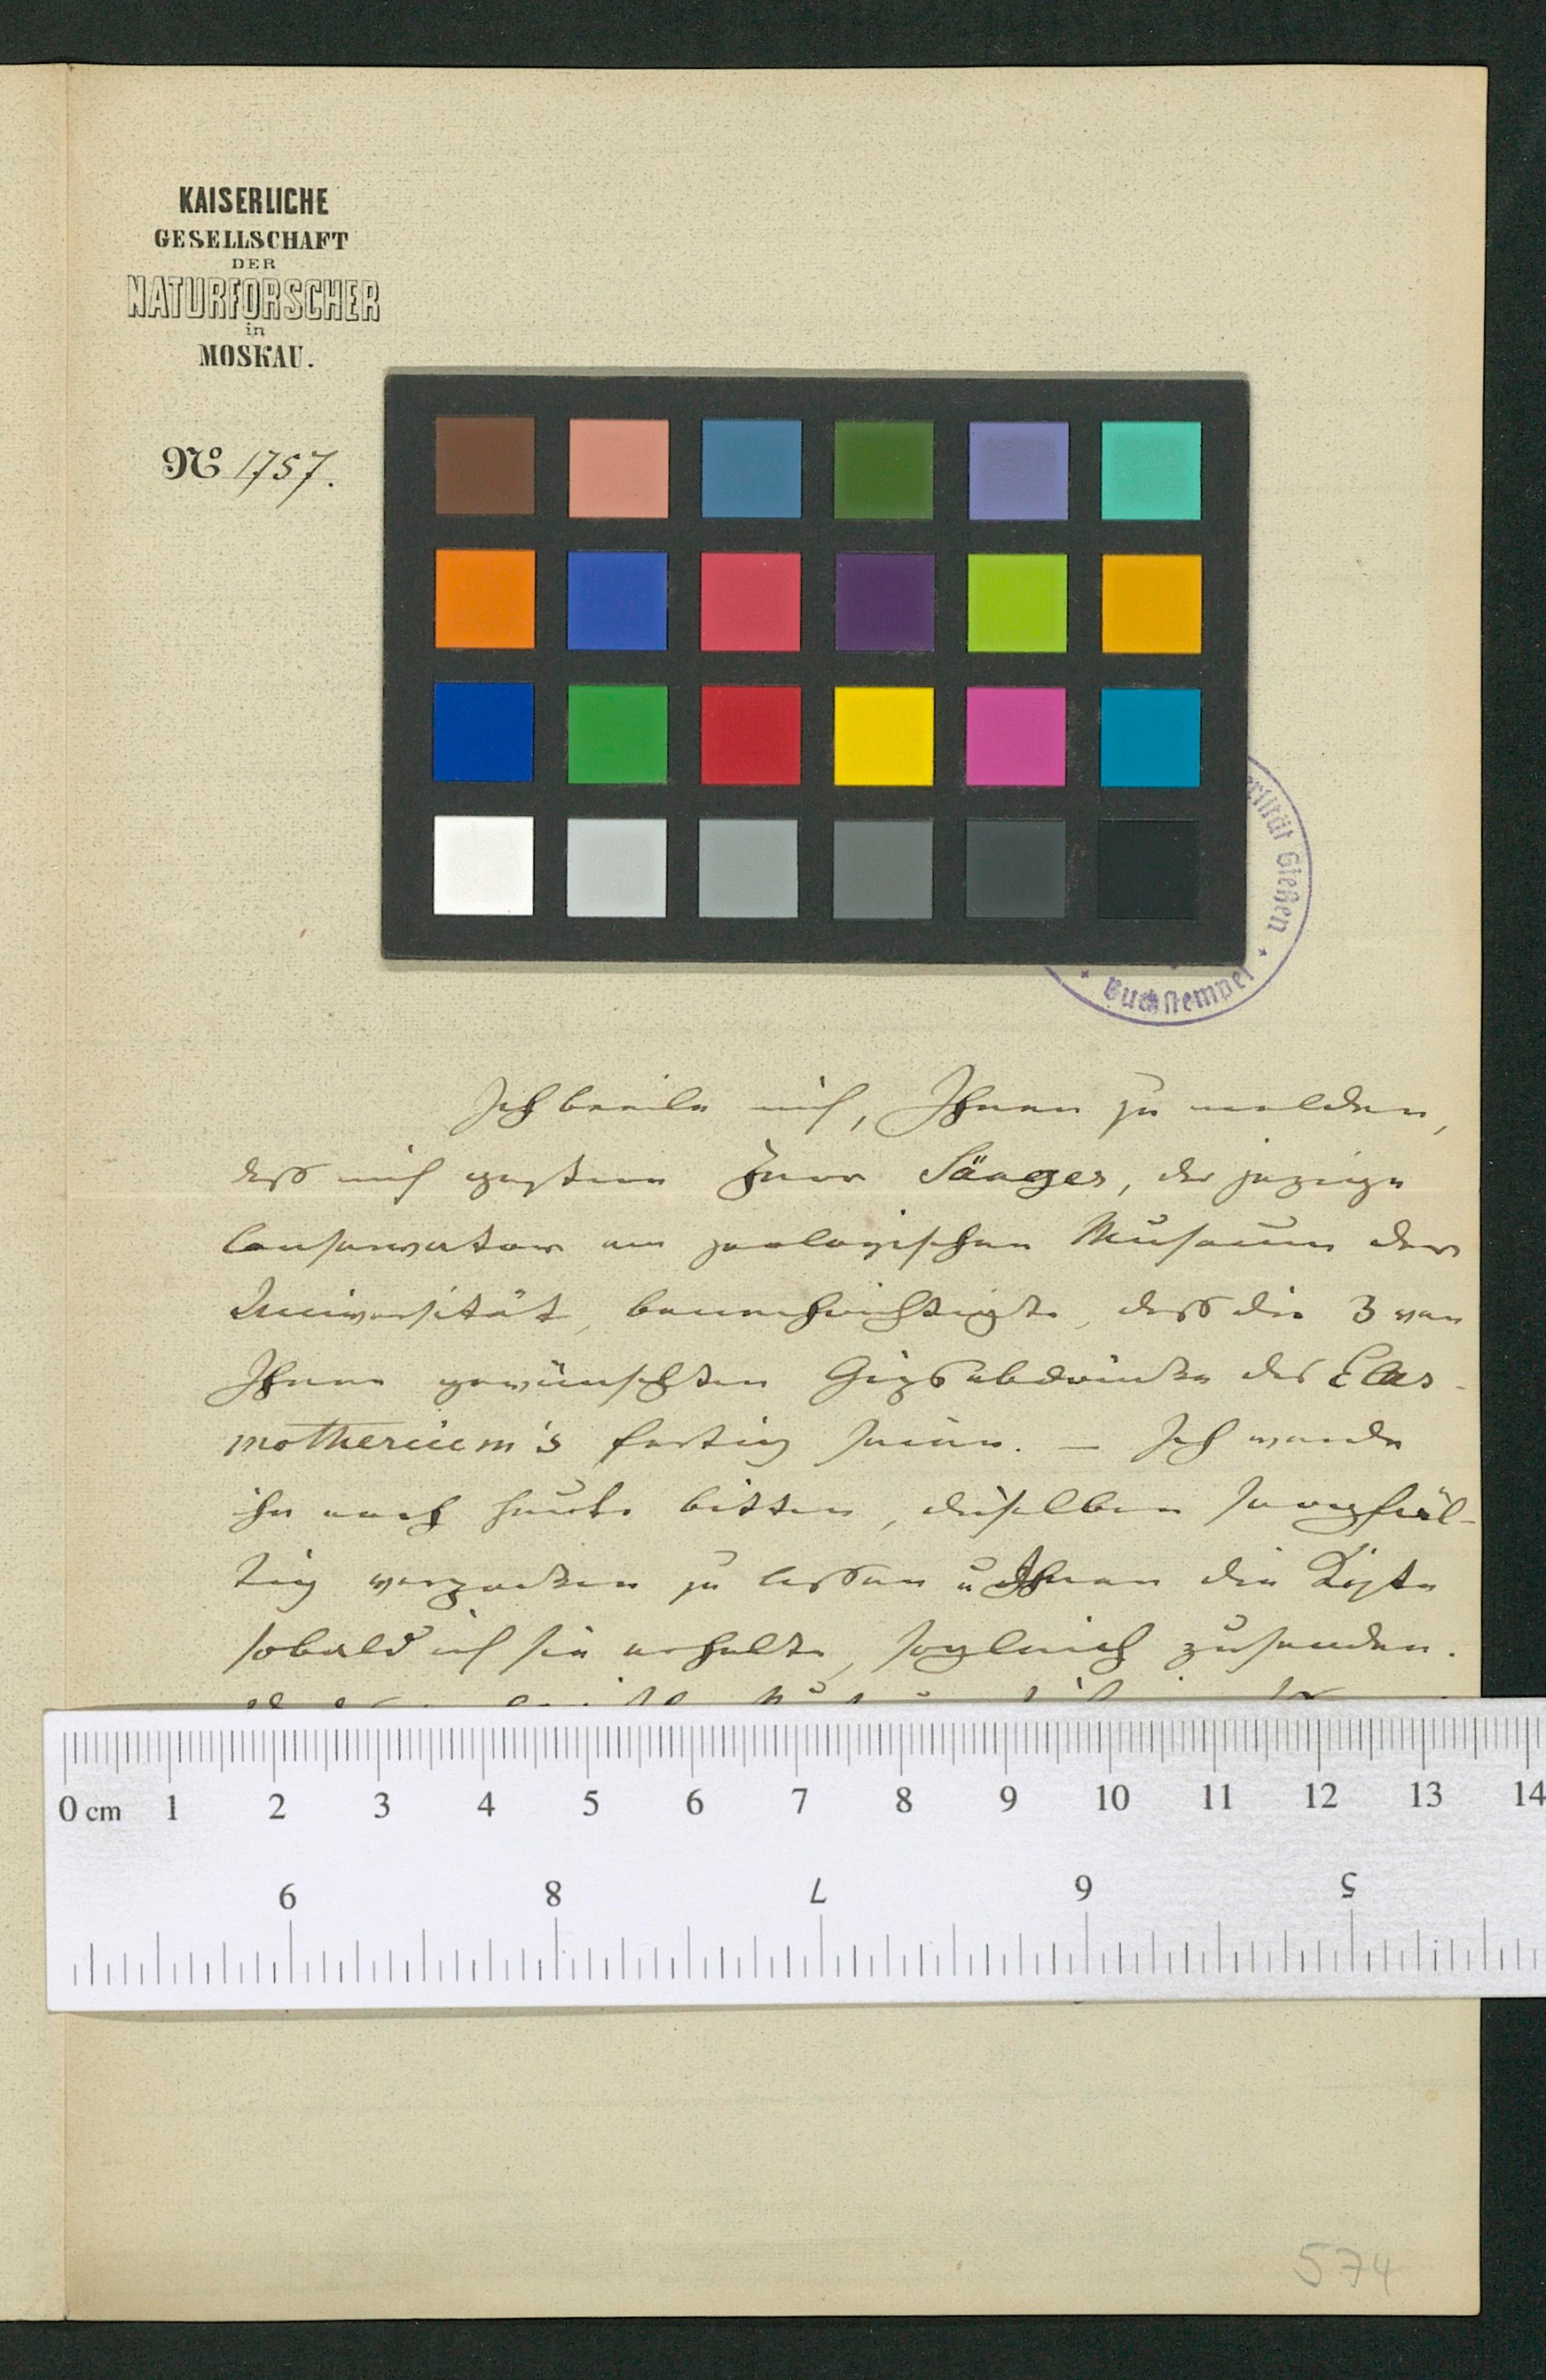 KAISERLICHE
GESELLSCHAFT
DER
NATURFORSCHER
in
MOSKAU.
No 1757.
Gießen
Buchstempel
Ich beeile mich, Ihnen zu melden,
daß mich gestern Herr Sänger, der jezige
Conservator am zoologischen Museum der
Universität, benachrichtigte, daß die 3 von
Ihnen gewünschten Gipsabdrücke des Elas-
motherium's fertig seien. — Ich werde
ihn noch heute bitten, dieselben sorgfäl-
tig verpacken zu lassen u Ihnen die Kiste
sobald ich sie erhalte, sogleich zusenden.
0 cm 1 2 3 4 5 6 7 8 9 10 11 12 13 14
9 8 7 6 5
574